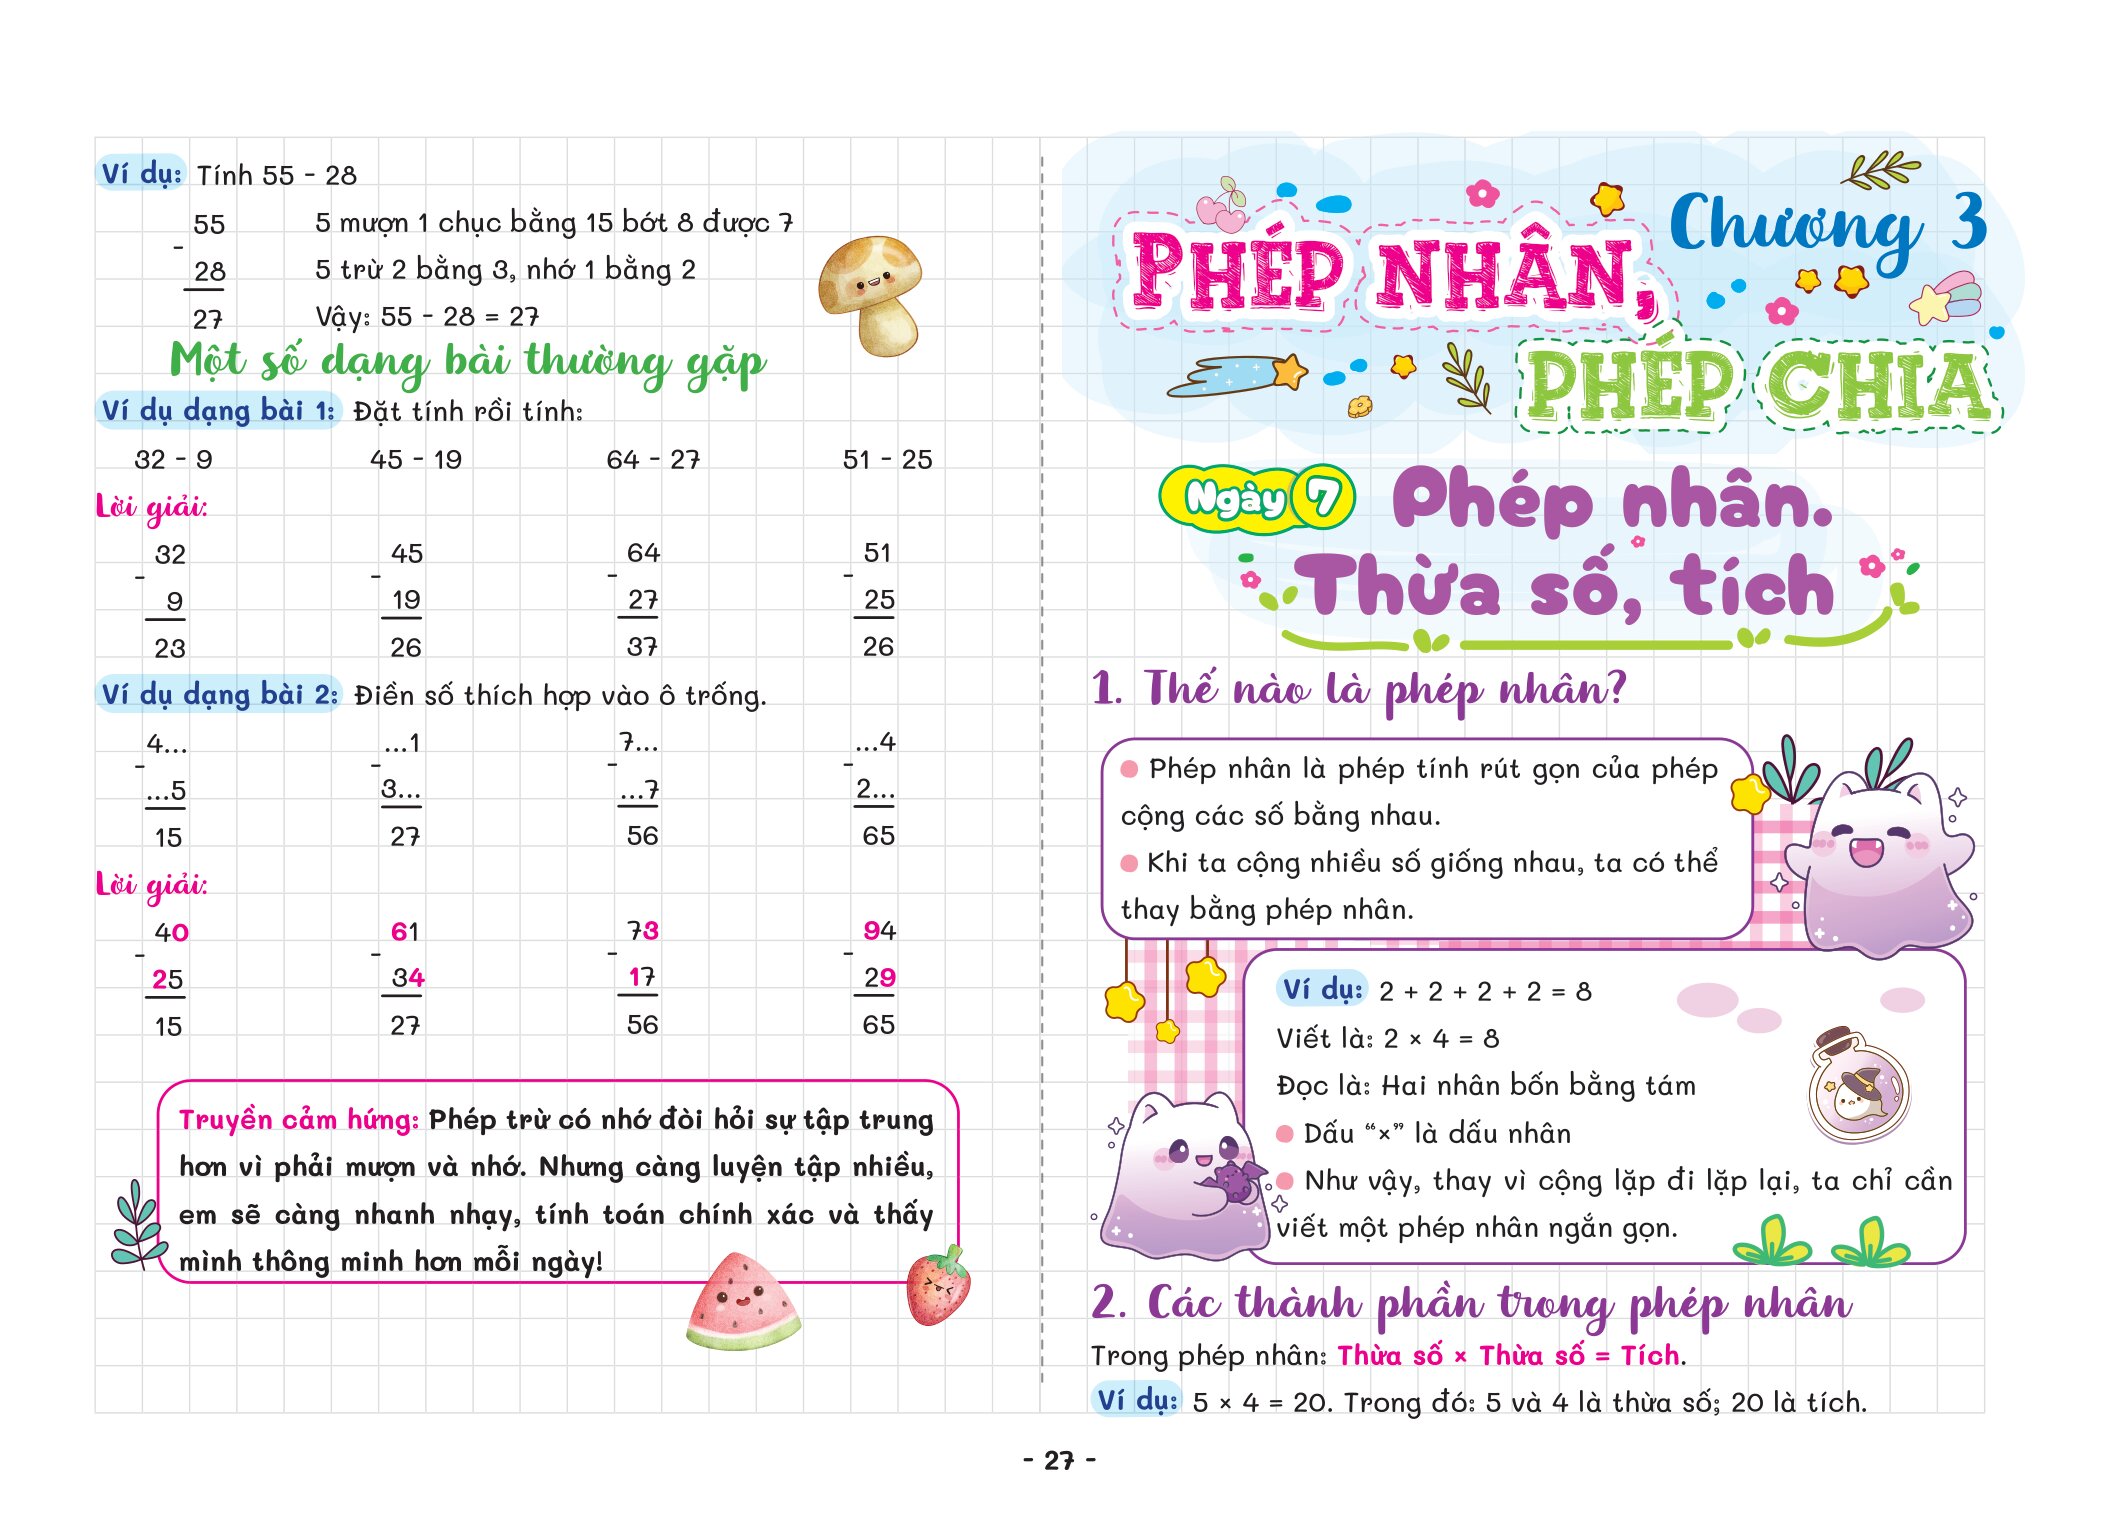 Ví dụ: Tính 55 - 28
55 5 mượn 1 chục bằng 15 bớt 8 được 7
-
28 5 trừ 2 bằng 3, nhớ 1 bằng 2
27 Vậy: 55 - 28 = 27
Một số dạng bài thường gặp
Ví dụ dạng bài 1: Đặt tính rồi tính:
32 - 9 45 - 19 64 - 27 51 - 25
Lời giải:
32 45 64 51
- - - -
9 19 27 25
23 26 37 26
Ví dụ dạng bài 2: Điền số thích hợp vào ô trống.
4... ...1 7... ...4
- - - -
...5 3... ...7 2...
15 27 56 65
Lời giải:
40 61 73 94
- - - -
25 34 17 29
15 27 56 65
Truyền cảm hứng: Phép trừ có nhớ đòi hỏi sự tập trung
hơn vì phải mượn và nhớ. Nhưng càng luyện tập nhiều,
em sẽ càng nhanh nhạy, tính toán chính xác và thấy
mình thông minh hơn mỗi ngày!
Chương 3
PHÉP NHÂN,
PHÉP CHIA
Ngày 7 Phép nhân.
Thừa số, tích
1. Thế nào là phép nhân?
Phép nhân là phép tính rút gọn của phép
cộng các số bằng nhau.
Khi ta cộng nhiều số giống nhau, ta có thể
thay bằng phép nhân.
Ví dụ: 2 + 2 + 2 + 2 = 8
Viết là: 2 × 4 = 8
Đọc là: Hai nhân bốn bằng tám
Dấu “×” là dấu nhân
Như vậy, thay vì cộng lặp đi lặp lại, ta chỉ cần
viết một phép nhân ngắn gọn.
2. Các thành phần trong phép nhân
Trong phép nhân: Thừa số × Thừa số = Tích.
Ví dụ: 5 × 4 = 20. Trong đó: 5 và 4 là thừa số; 20 là tích.
- 27 -